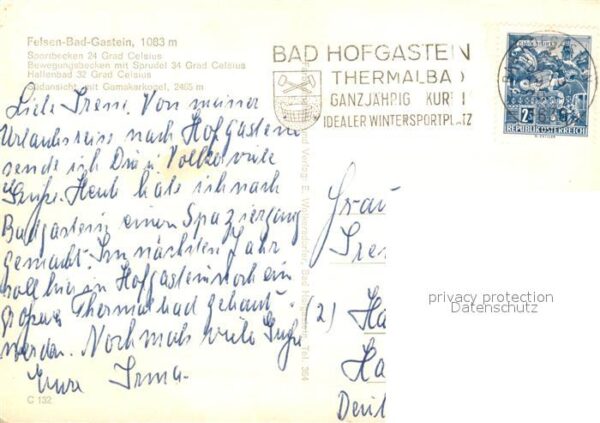 Felsen-Bad-Gastein, 1083 m
Sportbecken 24 Grad Celsius
Bewegungsbecken mit Sprudel 34 Grad Celsius
Hallenbad 32 Grad Celsius
Südansicht mit Gamskarkogel, 2465 m
Liebe Irene. Von meiner
Urlaubsreise nach Hofgastein
sende ich Dir u. Volko viele
Grüße. Heute habe ich nach
Badgastein einen Spaziergang
gemacht. Im nächsten Jahr
soll hier in Hofgastein noch ein
großes Thermalbad gebaut
werden. Nochmals viele Grüße
Eure Irma.
C 132
BAD HOFGASTEIN
THERMALBAD
GANZJÄHRIG KUR
IDEALER WINTERSPORTPLATZ
2 S
REPUBLIK ÖSTERREICH
Verlag E. Bad Hofgastein, Tel. 364
Frau
Iren
(2) Ha
Ha
Deut
privacy protection
Datenschutz